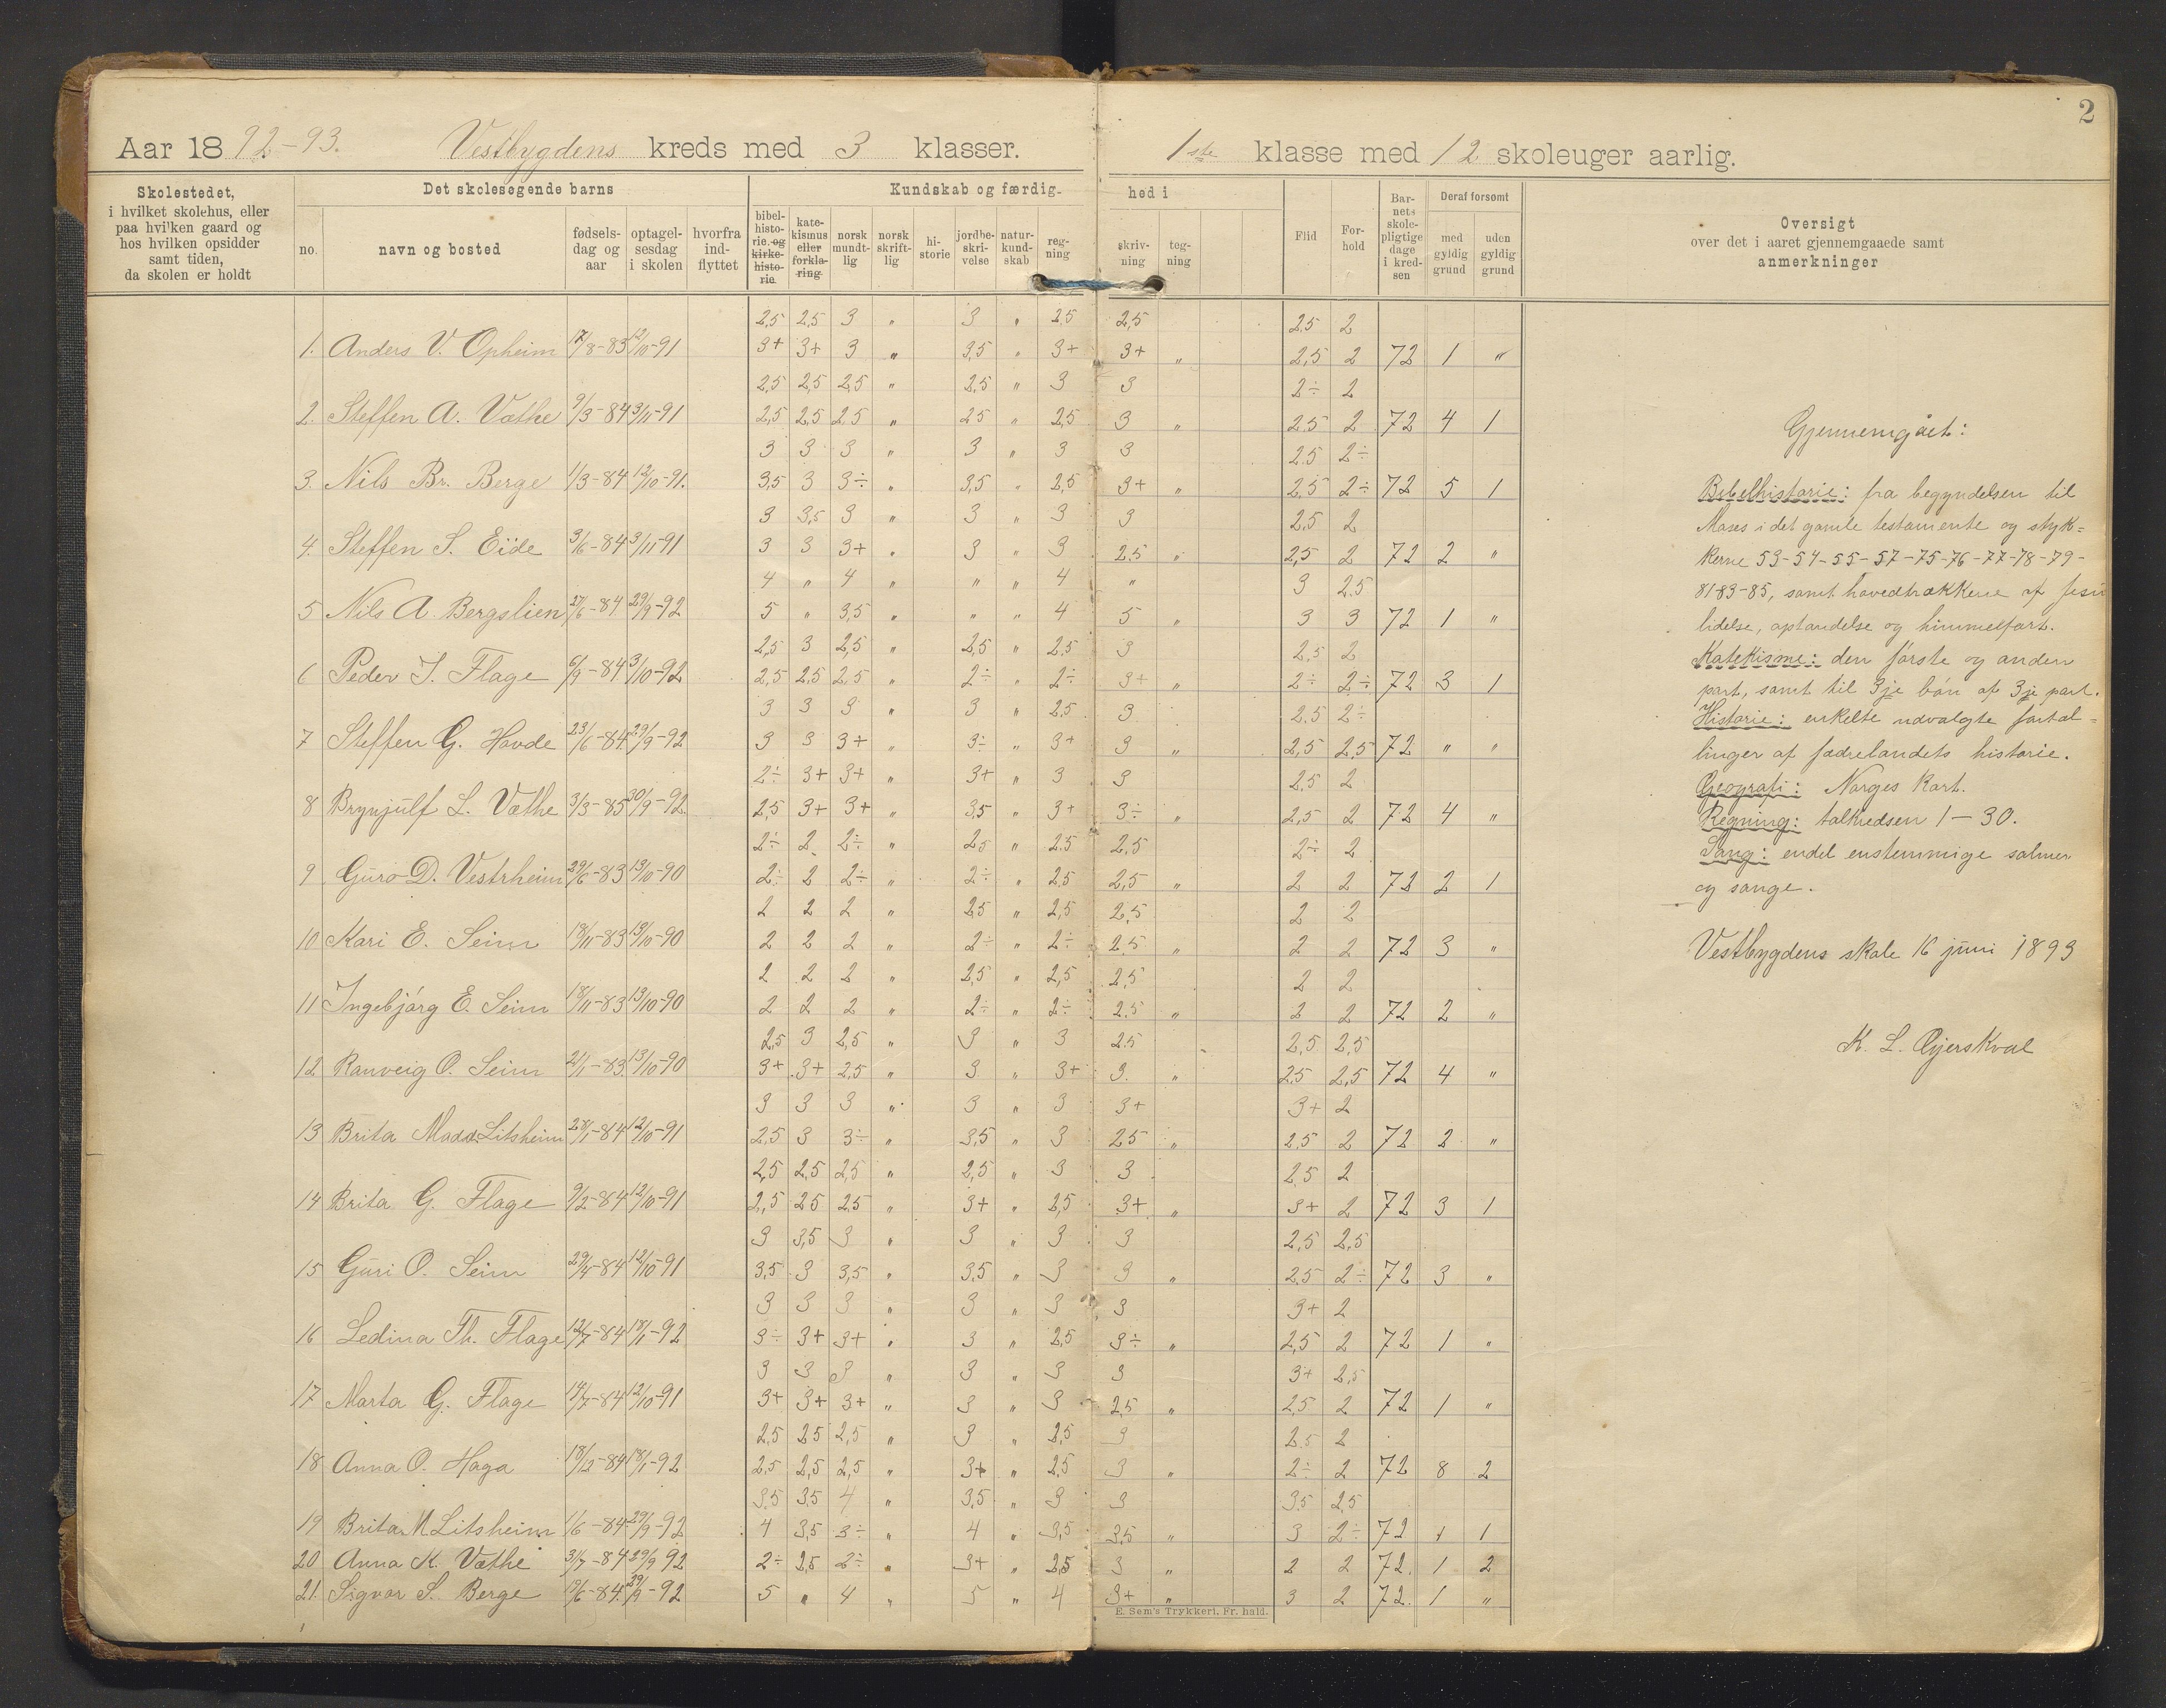 2
Aar 1892-93. Vestbygdens kreds med 3 klasser. 1ste klasse med 12 skoleuger aarlig.
Skolestedet, i hvilket skolehus, eller paa hvilken gaard og hos hvilken opsidder samt tiden, da skolen er holdt
Det skolesøgende barns
no. navn og bosted fødsels-dag og aar optagel-sesdag i skolen hvorfra ind-flyttet
Kundskab og færdig-hed i
bibel-histo-rie og kirke-histo-rie kate-kismus eller forkla-ring norsk mundt-lig norsk skrift-lig hi-storie jordbe-skri-velse natur-kund-skab reg-ning skriv-ning teg-ning
Flid For-hold Bar-nets skole-pligtige dage i kred-sen
Deraf forsømt med gyldig grund uden gyldig grund
Oversigt over det i aaret gjennemgaaede samt anmerkninger
2,5 2,5 3 " 3 " 2,5 2,5 2,5 2
1. Anders V. Opheim 17/8-83 12/10-91 3+ 3+ 3 " 3,5 " 3+ 3+ " 2,5 2 72 1 "
2,5 2,5 2,5 " 2,5 " 3 3 2÷ 2
2. Steffen A. Væthe 9/3-84 3/11-91 2,5 2,5 2,5 " 2,5 " 2,5 3 " 2,5 2 72 4 1
3 3 3 " 3 " 3 3 2,5 2÷
3. Nils Br. Berge 1/3-84 12/10-91. 3,5 3 3÷ " 3,5 " 2,5 3+ " 2,5 2÷ 72 5 1
3 3,5 3 " 3 " 3 3 2,5 2
4. Steffen S. Eide 3/6-84 3/11-91 3 3 3+ " 3 " 3 2,5 " 2,5 2 72 2 "
4 " 4 " " " 4 " 3 2,5
5 Nils A. Bergslien 27/6-84 29/9-92 5 " 3,5 " " " 4 5 " 3 3 72 1 "
2,5 3 2,5 " 2,5 " 2,5 3 2,5 2
6 Peder J. Flage 6/9-84 3/10-92 2,5 2,5 2,5 " 2÷ " 2÷ 3+ " 2÷ 2÷ 72 3 1
3 3 3 " 3 " 2,5 3 2,5 2÷
7 Steffen G. Hovde 23/6-84 29/9-92 3 3 3+ " 3÷ " 3+ 3 " 2,5 2,5 72 " "
2÷ 3+ 3+ " 3+ " 3 3 2,5 2
8 Brynjulf L. Væthe 3/3-85 30/9-92 2,5 3+ 3+ " 3,5 " 3+ 3÷ " 2,5 2 72 4 "
2÷ 2 2÷ " 2,5 " 2,5 2,5 2÷ 2
9 Guro D. Vestrheim 29/6-83 13/10-90 2÷ 2 2÷ " 2÷ " 2,5 2,5 " 2 2 72 2 1
2 2 2 " 2,5 " 2,5 2,5 2 2
10 Kari E. Seim 18/11-83 13/10-90 2 2 2 " 2÷ " 2÷ 2,5 " 2 2 72 3 "
2 2 2 " 2,5 " 2,5 2,5 2 2
11 Ingebjórg E. Seim 18/11-83 13/10-90 2 2 2 " 2÷ " 2÷ 2,5 " 2 2 72 2 "
2,5 3 2,5 " 3 " 3 2,5 2,5 2,5
12 Ranveig O. Seim 21/1-83 13/10-90 3+ 3+ 2,5 " 3 " 3+ 3 " 2,5 2,5 72 4 "
3 3 3 " 3 " 3 3+ 3+ 2
13 Brita Madsd. Litsheim 28/1-84 12/10-91 2,5 3 3÷ " 3,5 " 3 2,5 " 2,5 2 72 2 "
2,5 2,5 2,5 " 2,5 " 3 3 2,5 2
14 Brita G. Flage 9/2-84 12/10-91 2,5 2,5 2,5 " 3+ " 2,5 3+ " 3+ 2 72 3 1
3 3,5 3 " 3 " 3 3 2,5 2,5
15 Guri O. Seim 29/4-84 12/10-91 3,5 3 3,5 " 3,5 " 3 3 " 2,5 2÷ 72 3 "
3 3 3 " 3 " 3 3 3+ 2
16 Ledina Th. Flage 12/7-84 18/1-92 3÷ 3+ 3+ " 3 " 2,5 3÷ " 2,5 2 72 1 "
3 3 3 " 3 " 3 3 3+ 2,5
17 Marta G. Flage 14/7-84 12/10-91 3+ 3+ 3+ " 3 " 3 2,5 " 2,5 2 72 1 "
2,5 2,5 2,5 " 3 " 2,5 3 2,5 2
18 Anna O. Haga 18/12-84 18/1-92 2,5 2,5 2,5 " 3+ " 2,5 3 " 2÷ 2 72 8 2
3,5 3,5 4 " 3,5 " 3 3 3,5 2,5
19 Brita M Litsheim 1/6-84 29/9-92 4 3,5 3÷ " 4 " 3,5 3,5 " 3 2÷ 72 1 1
20 Anna K. Væthe 31/7-84 29/9 92 2÷ 2,5 2÷ " 3+ " 2,5 3 " 2 2 72. 1 2
21. Sigvor S. Berge 19/6-84 29/9-92 5 " 4 " 5 " 4 3+ " 3 2 72. 1 "
E. Sem's Trykkeri, Fr. hald.
Gjennemgået:
Bibelhistorie: fra begyndelsen til
Moses i det gamle testamente og styk=
kerne 53-54-55-57-75-76-77-78-79-
81-83-85, samt hovedtrækkene af Jesu
lidelse, opstandelse og himmelfart.
Katekisme: den fórste og anden
part, samt til 3je bón af 3je part.
Historie: enkelte udvalgte fortæl=
linger af fædrelandets historie.
Geografi: Norges kart.
Regning: talkredsen 1-30.
Sang: endel enstemmige salmer
og sange.
Vestbygdens skole 16 juni 1893
K. L. Gjerskval